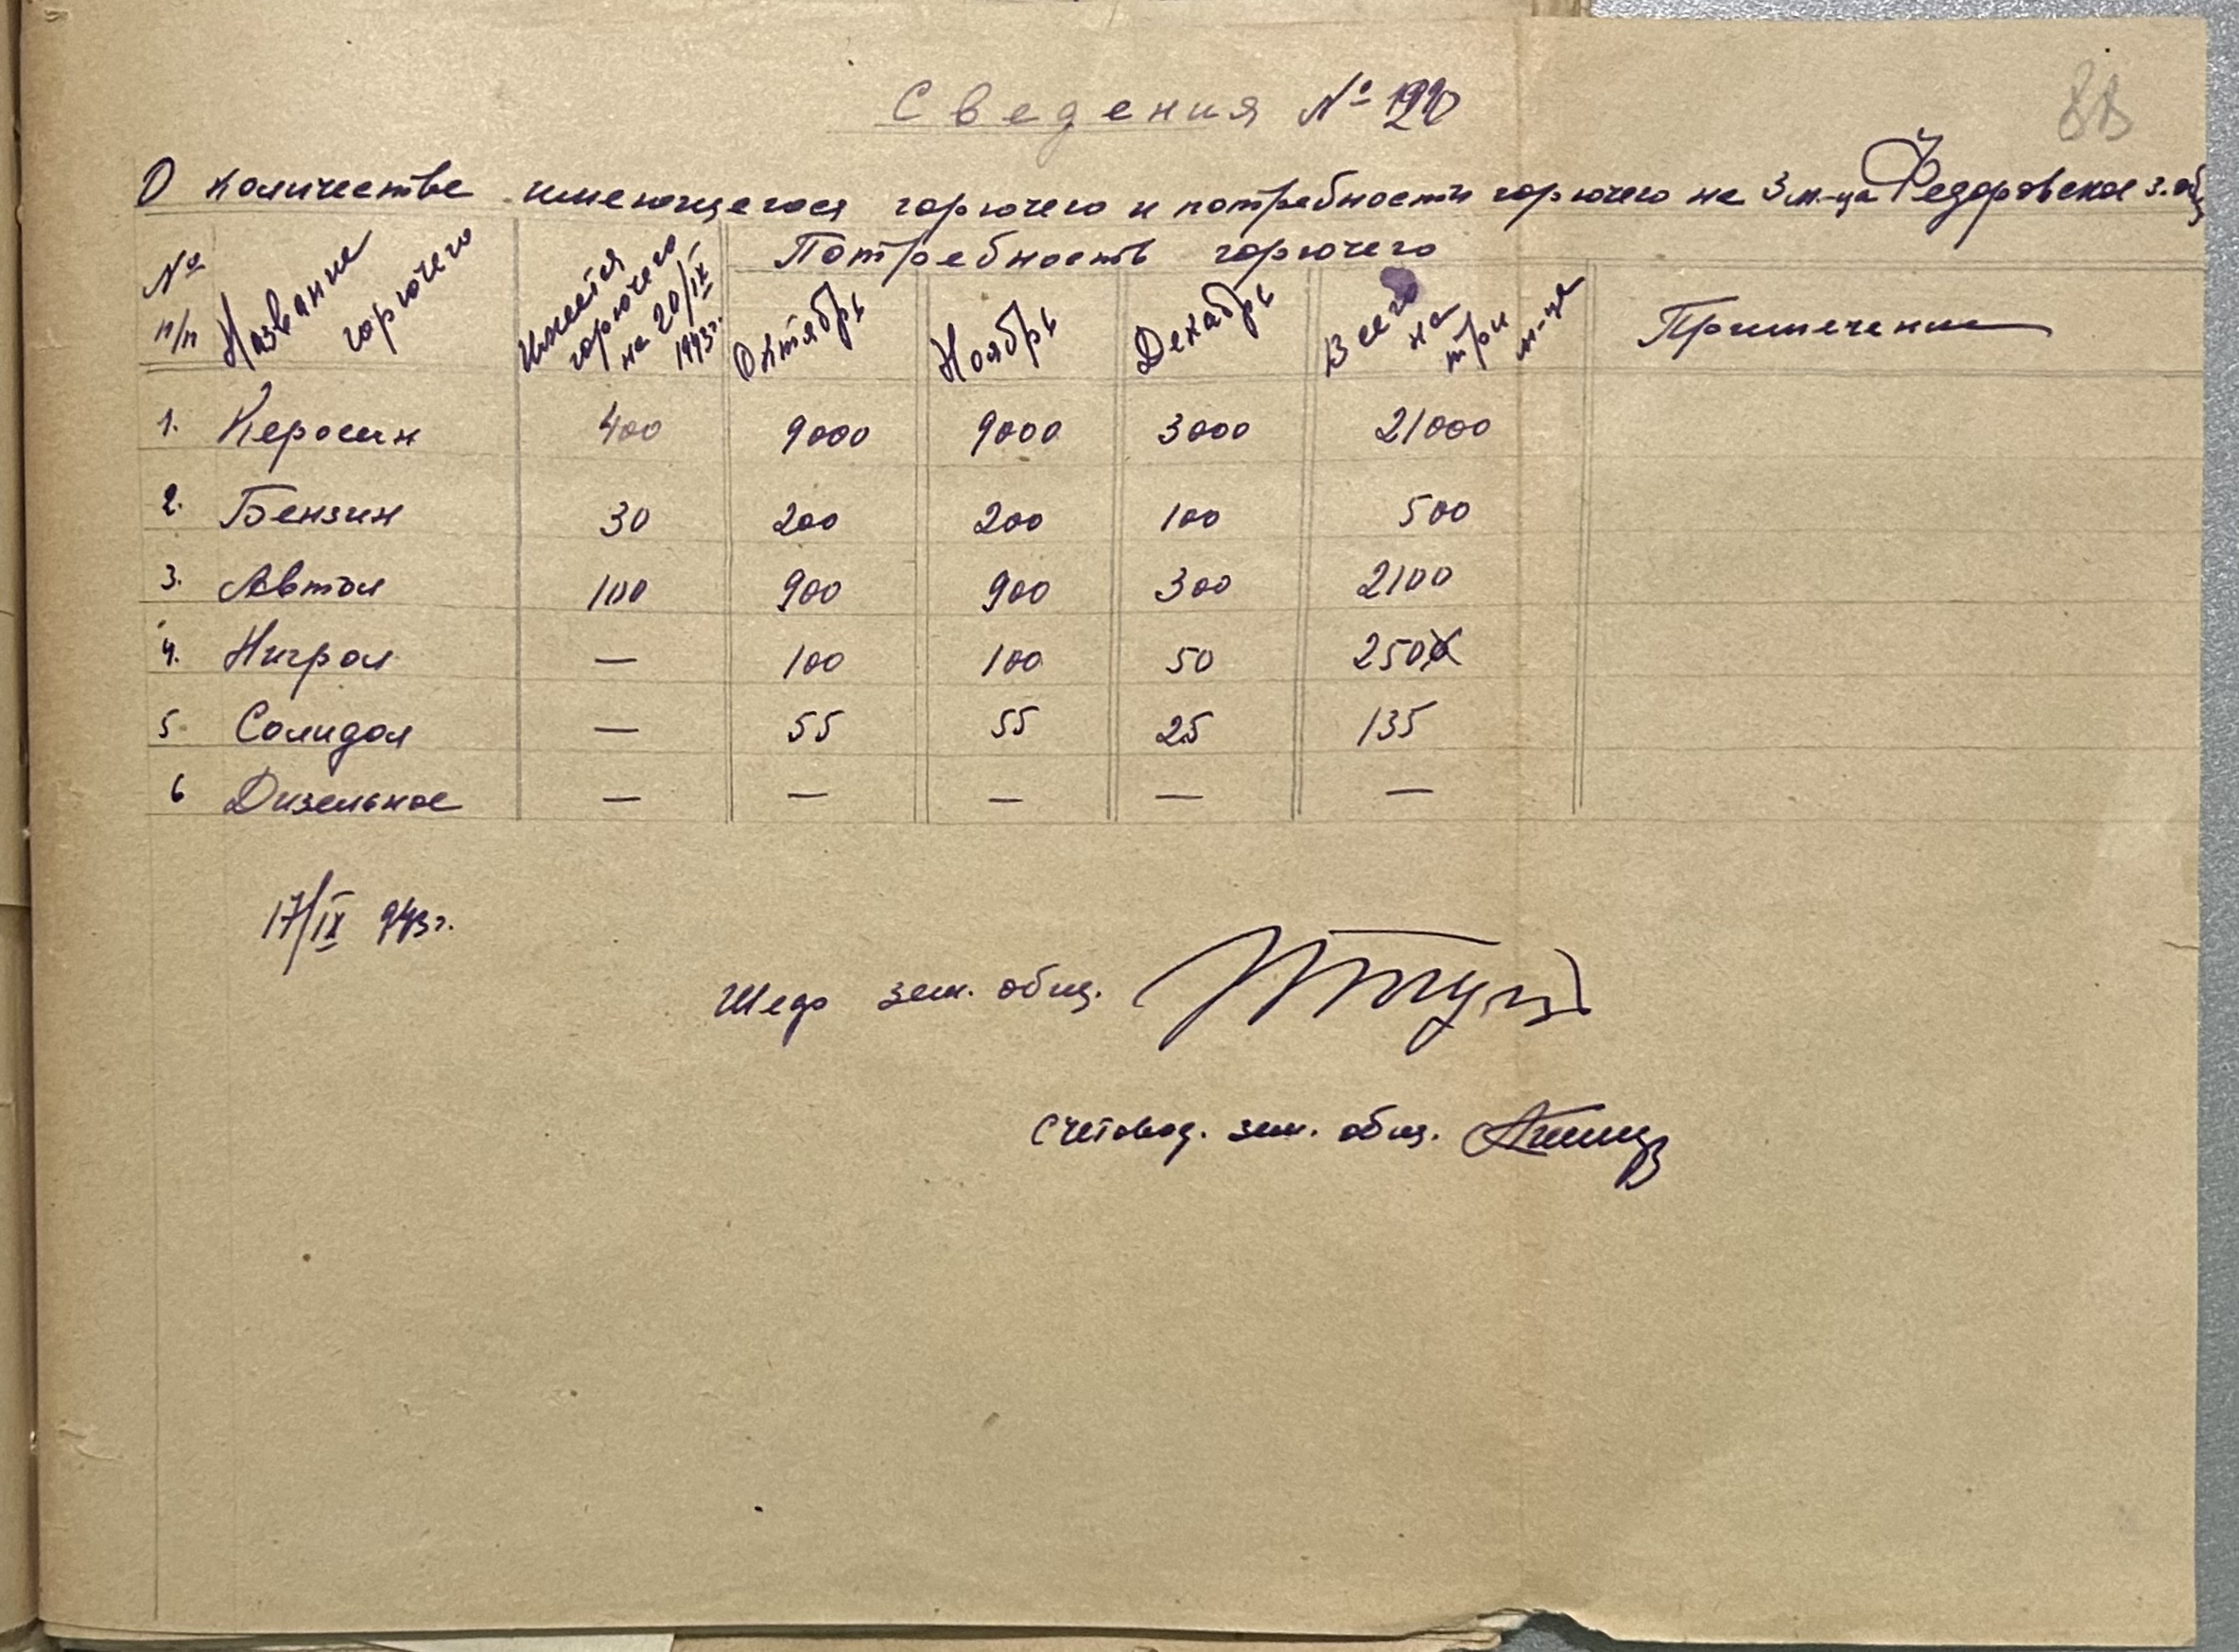 Сведения №
О количестве имеющегося горючего и потребности горючего на 3 м-ца Федоровское з. общ
№ п/п Название горючего Имеется горючего на 20/IX 1943г. Потребность горючего
Октябрь Ноябрь Декабрь Всего на три м-ца Примечение
1. Керосин 400 9000 9000 3000 21000
2. Бензин 30 200 200 100 500
3. Автол 100 900 900 300 2100
4. Нигрол — 100 100 50 250
5. Солидол — 55 55 25 135
6 Дизельное — — — — —
17/IX 943г.
Шеф зем. общ.
Счетовод. зем. общ.